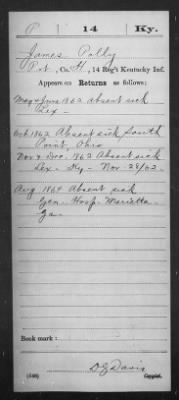 P | 14 | Ky.
James Polly
Pvt., Co. H, 14 Reg't Kentucky Inf.
Appears on Returns as follows:
May & June 1862 absent sick
Lex -
Oct 1862 Absent sick South
Point, Ohio
Nov & Dec. 1862 Absent sick
Lex - Ky - Nov 28/62
Aug 1864 Absent sick
Gen - Hosp - Marietta -
Ga -
Book mark:
(546) D E Davis
Copyist.